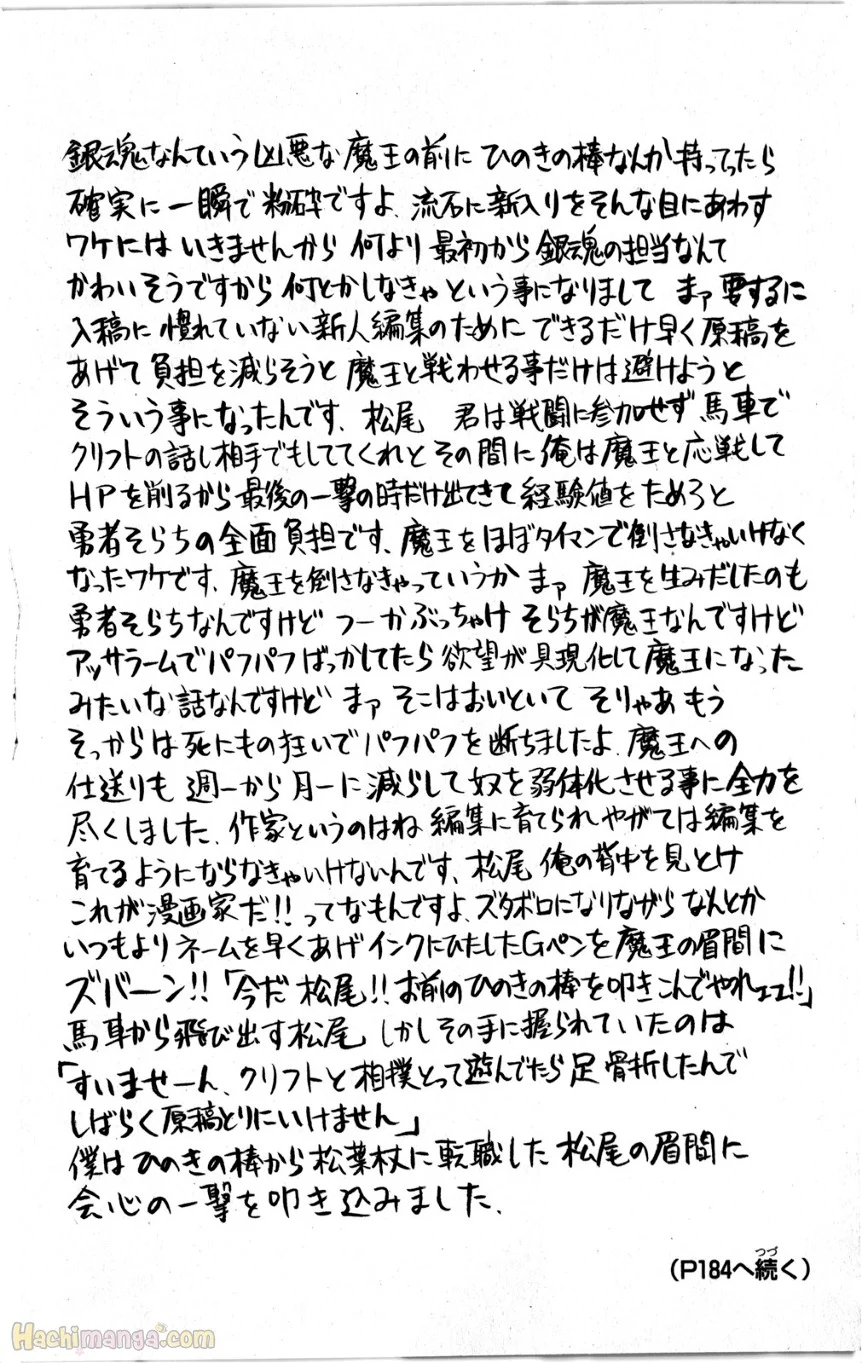 銀魂なんていう凶悪な魔王の前に ひのきの棒なんか持ってったら
確実に一瞬で粉砕ですよ、流石に新入りをそんな目にあわす
ワケにはいきませんから 何より最初から銀魂の担当なんて
かわいそうですから 何とかしなきゃという事になりまして まァ要するに
入稿に慣れていない新人編集のために できるだけ早く原稿を
あげて負担を減らそうと 魔王と戦わせる事だけは避けようと
そういう事になったんです、松尾 君は戦闘に参加せず馬車で
クリフトの話し相手でもしててくれと その間に俺は魔王と応戦して
HPを削るから最後の一撃の時だけ出てきて経験値をためろと
勇者そらちの全面負担です、魔王をほぼタイマンで倒さなきゃいけなく
なったワケです、魔王を倒さなきゃっていうか まァ 魔王を生みだしたのも
勇者そらちなんですけど つーかぶっちゃけ そらちが魔王なんですけど
アッサラームでパフパフばっかしてたら欲望が具現化して魔王になった
みたいな話なんですけど まァ そこはおいといて そりゃあ もう
そっからは死にもの狂いでパフパフを断ちましたよ、魔王への
仕送りも 週一から月一に減らして奴を弱体化させる事に全力を
尽くしました、作家というのはね 編集に育てられ やがては編集を
育てるようにならなきゃいけないんです、松尾 俺の背中を見とけ
これが漫画家だ!!ってなもんですよ、ズタボロになりながらなんとか
いつもよりネームを早くあげインクにひたしたGペンを魔王の眉間に
ズバーン!!「今だ 松尾!!お前のひのきの棒を叩きこんでやれェェ!!」
馬車から飛び出す松尾、しかしその手に握られていたのは
「すいませーん、クリフトと相撲とって遊んでたら足骨折したんで
しばらく原稿とりにいけません」
僕はひのきの棒から松葉杖に転職した松尾の眉間に
会心の一撃を叩き込みました、
つづ
(P184へ続く)
Hachimanga.com